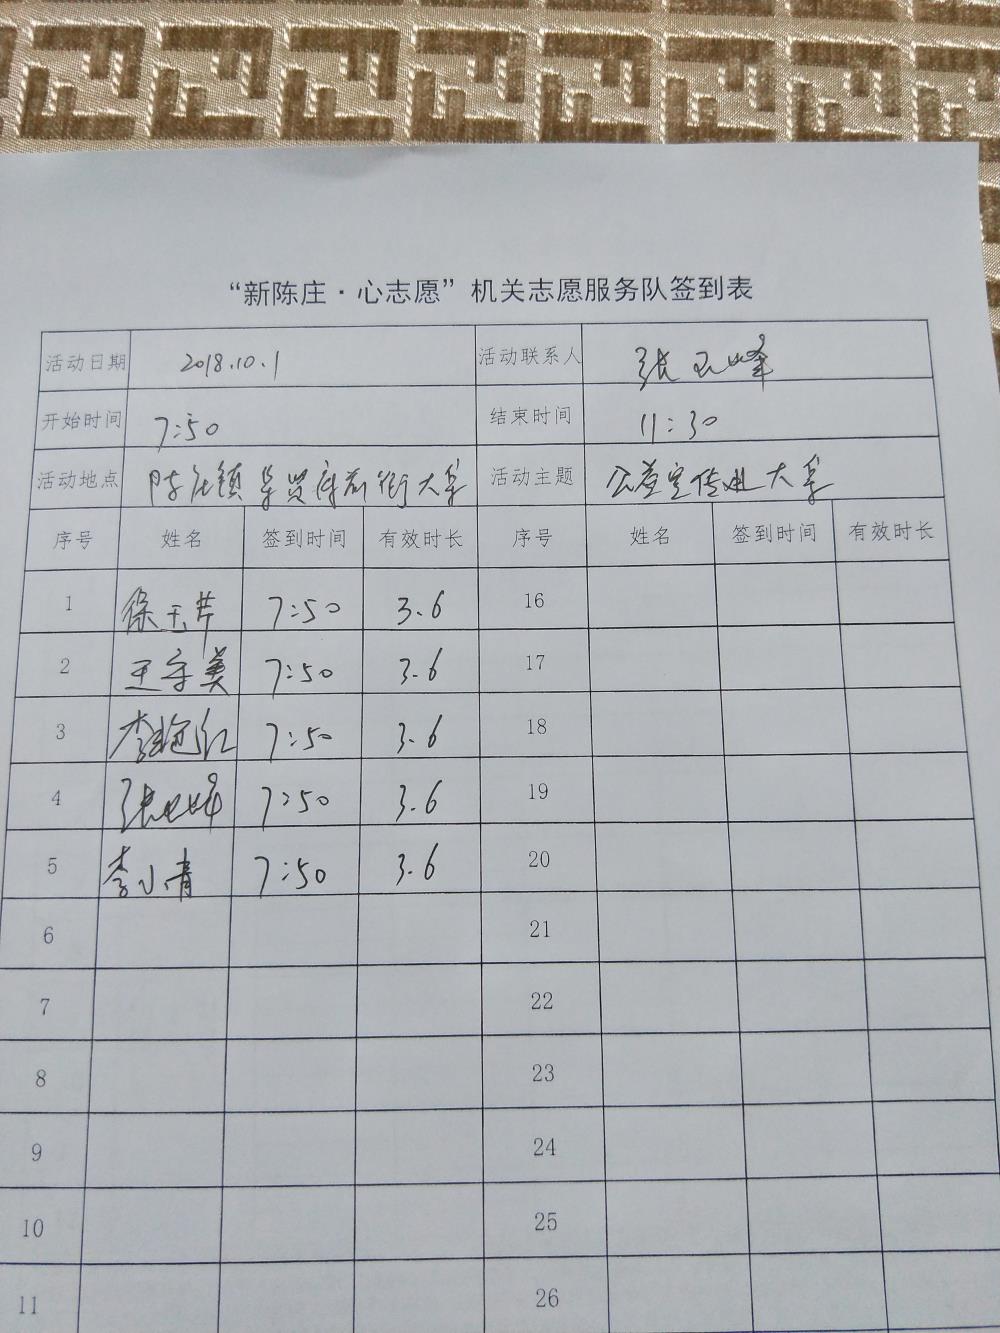 “新陈庄·心志愿”机关志愿服务队签到表
活动日期 2018.10.1 活动联系人 张玉峰
开始时间 7:50 结束时间 11:30
活动地点 陈庄镇 府前街大集 活动主题 公益宣传进大集
序号 姓名 签到时间 有效时长 序号 姓名 签到时间 有效时长
1 徐玉芹 7:50 3.6 16
2 王守美 7:50 3.6 17
3 李艳红 7:50 3.6 18
4 张玉峰 7:50 3.6 19
5 李小青 7:50 3.6 20
6 21
7 22
8 23
9 24
10 25
11 26